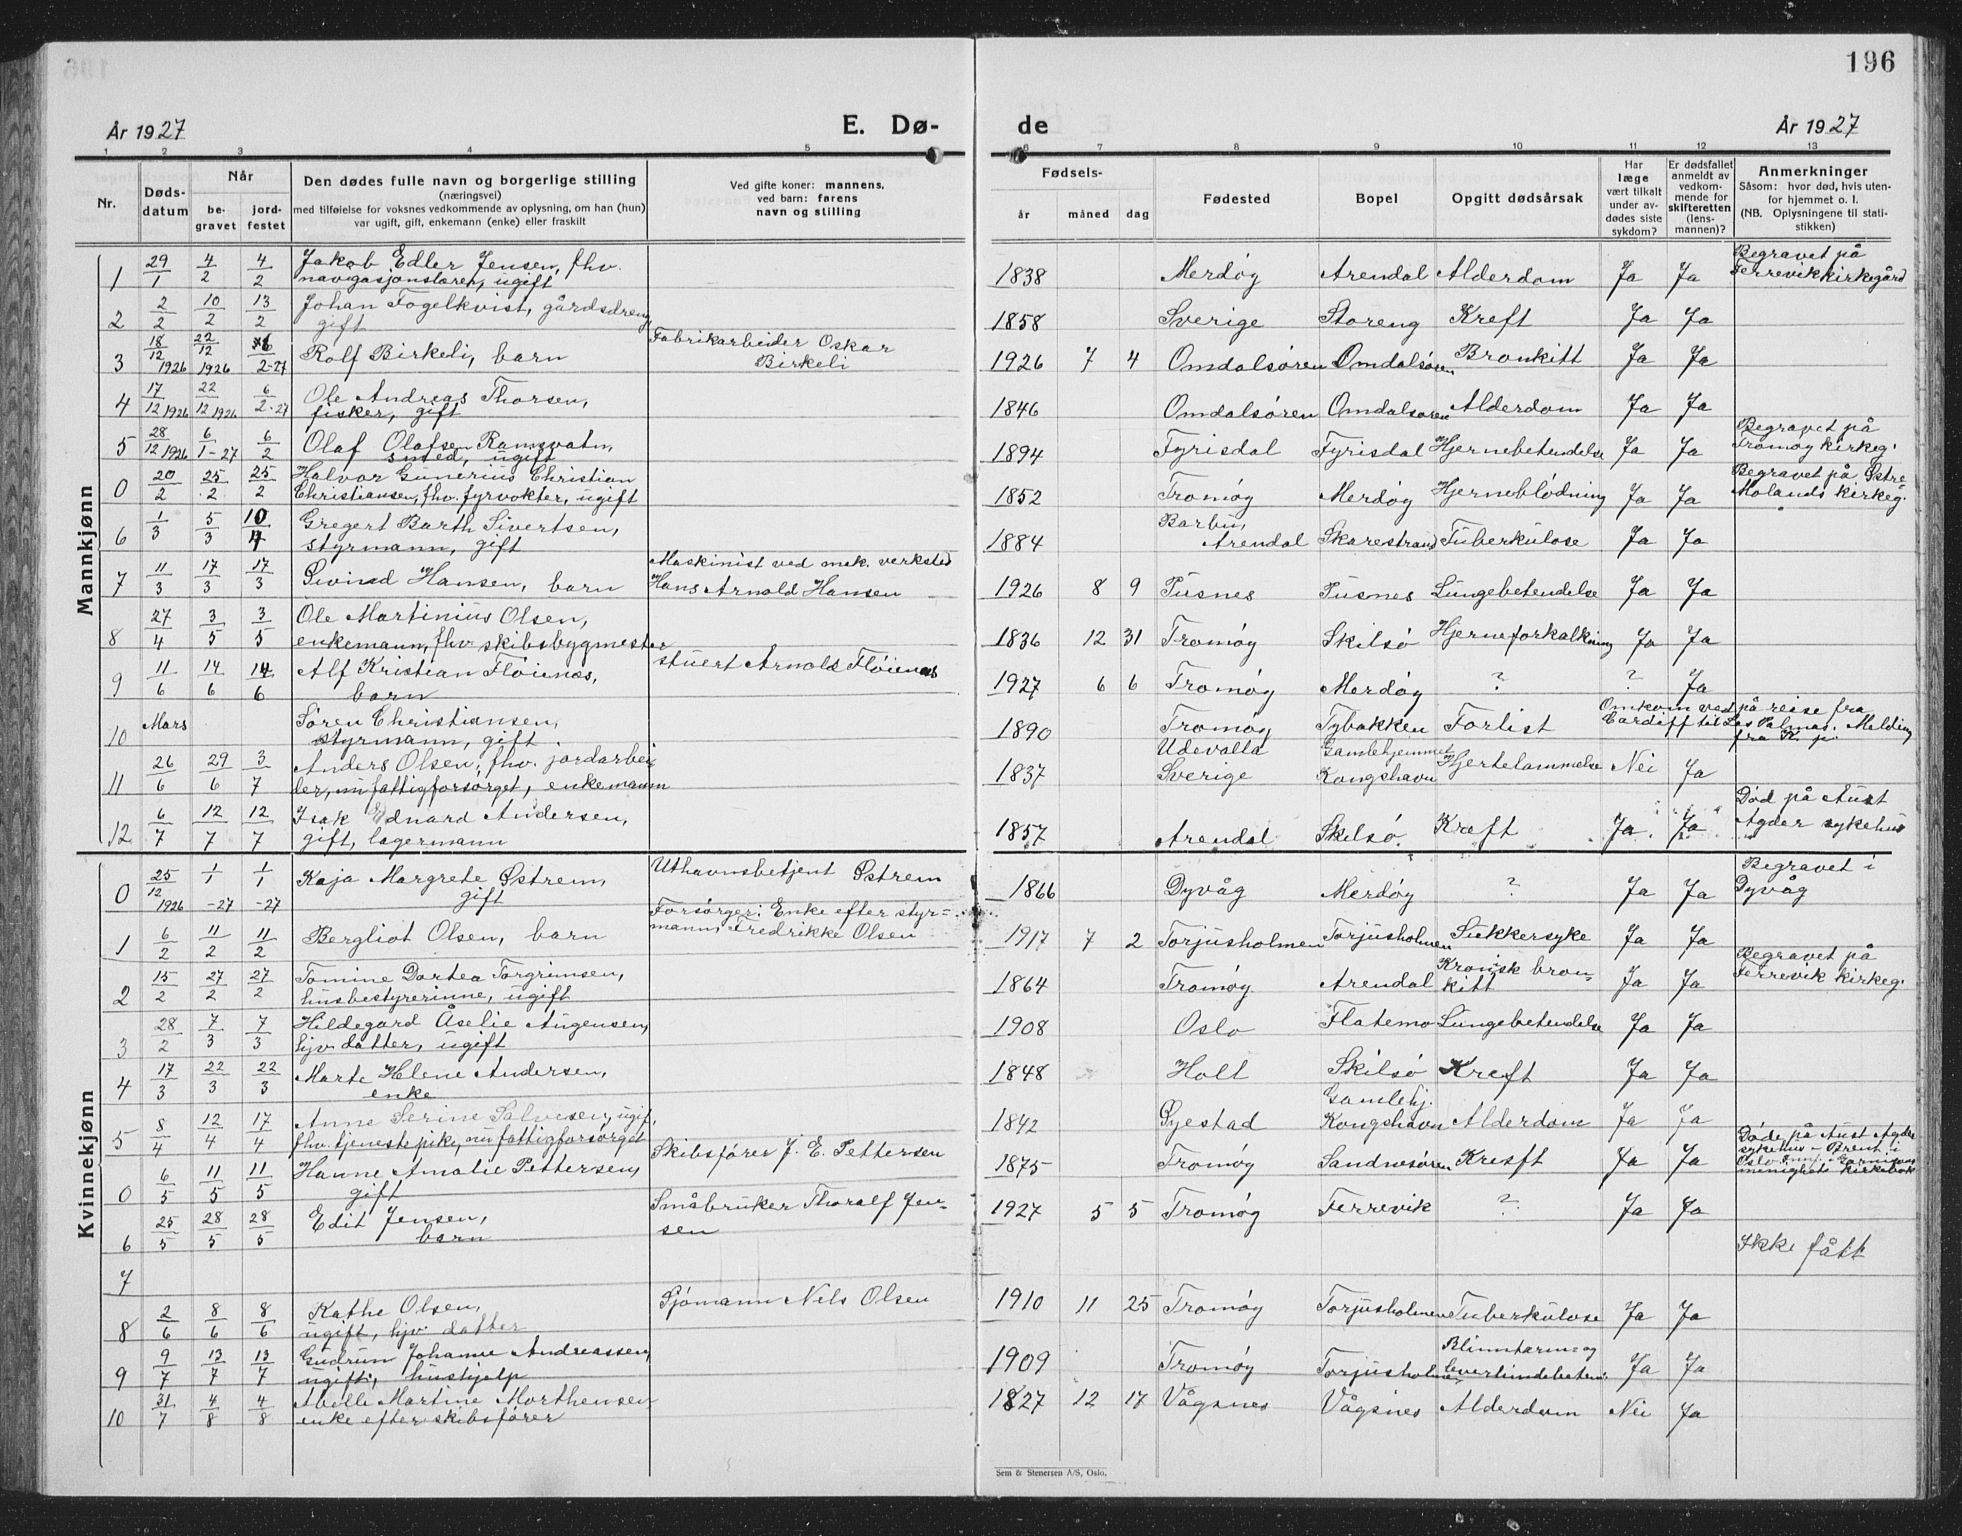 196
År 1927 E. Dø- de År 1927
1 2 3 4 5 6 7 8 9 10 11 12 13
Nr.
Døds-
datum
Når
be-
gravet
jord-
festet
Den dødes fulle navn og borgerlige stilling
(næringsvei)
med tilføielse for voksnes vedkommende av oplysning, om han (hun)
var ugift, gift, enkemann (enke) eller fraskilt
Ved gifte koner: mannens,
ved barn: farens
navn og stilling
Fødsels-
år måned dag
Fødested
Bopel
Opgitt dødsårsak
Har
læge
vært tilkalt
under av-
dødes siste
sykdom?
Er dødsfallet
anmeldt av
vedkom-
mende for
skifteretten
(lens-
mannen)?
Anmerkninger
Såsom: hvor død, hvis uten-
for hjemmet o. l.
(NB. Oplysningene til stati-
stikken)
Mannkjønn
1 29/1 4/2 4/2 Jakob Edler Jensen, fhv.
navigasjonslærer, ugift
1838 Merdøy Arendal Alderdom Ja Ja Begravet på
Færrevik kirkegård
2 2/2 10/2 13/2 Johan Fogelkvist, gårdsdreng
gift
1858 Sverige Storeng Kreft Ja Ja
3 18/12 1926 22/12 1926 6/2-27 Rolf Birkeli, barn Fabrikarbeider Oskar
Birkeli
1926 7 4 Omdalsøren Omdalsøren Bronkitt Ja Ja
4 17/12 1926 22/12 1926 6/2-27 Ole Andreas Thorsen,
fisker, gift
1846 Omdalsøren Omdalsøren Alderdom Ja Ja
5 28/12 1926 6/1-27 6/2 Olaf Olafsen Ramsvatn,
smed, ugift
1894 Fyrisdal Fyrisdal Hjernebetendelse Ja Ja Begravet på
Tromøy kirkeg.
0 20/2 25/2 25/2 Halvor Gunerius Christian
Christiansen, fhv. fyrvokter, ugift
1852 Tromøy Merdøy Hjerneblødning Ja Ja Begravet på Østre
Molands kirkeg.
6 1/3 5/3 10/4 Gregert Barth Sivertsen,
styrmann, gift
1884 Barbu,
Arendal Skarestrand Tuberkulose Ja Ja
7 11/3 17/3 17/3 Øivind Hansen, barn Maskinist ved mek. verksted
Hans Arnold Hansen
1926 8 9 Pusnes Pusnes Lungebetendelse Ja Ja
8 27/4 3/5 3/5 Ole Martinius Olsen,
enkemann, fhv. skibsbygmester
1836 12 31 Tromøy Skilsø Hjerneforkalkning Ja Ja
9 11/6 14/6 14/6 Alf Kristian Fløienæs,
barn
stuert Arnold Fløienæs
1927 6 6 Tromøy Merdøy ? ? Ja
10 Mars Søren Christiansen,
styrmann, gift
1890 Tromøy Tybakken Forlist Omkom ved på reise fra
Cardiff til Las Palmas. Melding
fra K. p.
11 26/6 29/6 3/7 Anders Olsen, fhv. jordarbei
der, nu fattigforsørget, enkemann
1837 Udevalla
Sverige Gamlehjemmet
Kongshavn Hjertelammelse Nei Ja
12 6/7 12/7 12/7 Isak Ednard Andersen,
gift, lagermann
1857 Arendal Skilsø Kræft Ja Ja Død på Aust
Agder sykehus
Kvinnekjønn
0 25/12 1926 1/1-27 1/1-27 Kaja Margrete Østrem,
gift
Uthavnsbetjent Østrem
1866 Dyvåg Merdøy ? Ja Ja Begravet i
Dyvåg
1 6/2 11/2 11/2 Bergliot Olsen, barn Forsørger: Enke efter styr=
mann, Fredrikke Olsen
1917 7 2 Torjusholmen Torjusholmen Sukkersyke Ja Ja
2 15/2 27/2 27/2 Tomine Dortea Torgrimsen,
husbestyrerinne, ugift
1864 Tromøy Arendal Kronisk bron-
kitt Ja Ja Begravet på
Færrevik kirkeg.
3 28/2 7/3 7/3 Hildegard Åselie Augensen,
hjv. datter, ugift
1908 Oslo Flatemo Lungebetendelse Ja Ja
4 17/3 22/3 22/3 Marte Helene Andersen,
enke
1848 Holt Skilsø Kreft Ja Ja
5 8/4 12/4 17/4 Anne Serine Salvesen, ugif,
fhv. tjenestepike, nu fattigforsørget
1842 Øyestad Gamlehj.
Kongshavn Alderdom Ja Ja
0 6/5 11/5 11/5 Hanne Amalie Pettersen,
gift
Skibsfører J. E. Pettersen
1875 Tromøy Sandnesøren Kreft Ja Ja Døde på Aust Agder
sykehus - Brent i
Oslo Innf. i Garnisons
menighets kirkebok
6 25/5 28/5 28/5 Edit Jensen,
barn
Småbruker Thoralf Jen-
sen
1927 5 5 Tromøy Færrevik ? Ja Ja
7 Ikke fått
8 2/6 8/6 8/6 Kathe Olsen,
ugift, hjv. datter
Sjømann Nels Olsen
1910 11 25 Tromøy Torjusholmen Tuberkulose Ja Ja
9 9/7 13/7 13/7 Gudrun Johanne Andreassen,
ugift, hushjelp
1909 Tromøy Torjusholmen Blinntarm- og Ja Ja
10 31/7 4/8 4/8 Abelle Martine Morthensen
enke efter skibsfører
1827 12 17 Vågsnes Vågsnes Alderdom Nei Ja
Sem & Stenersen A/S, Oslo.